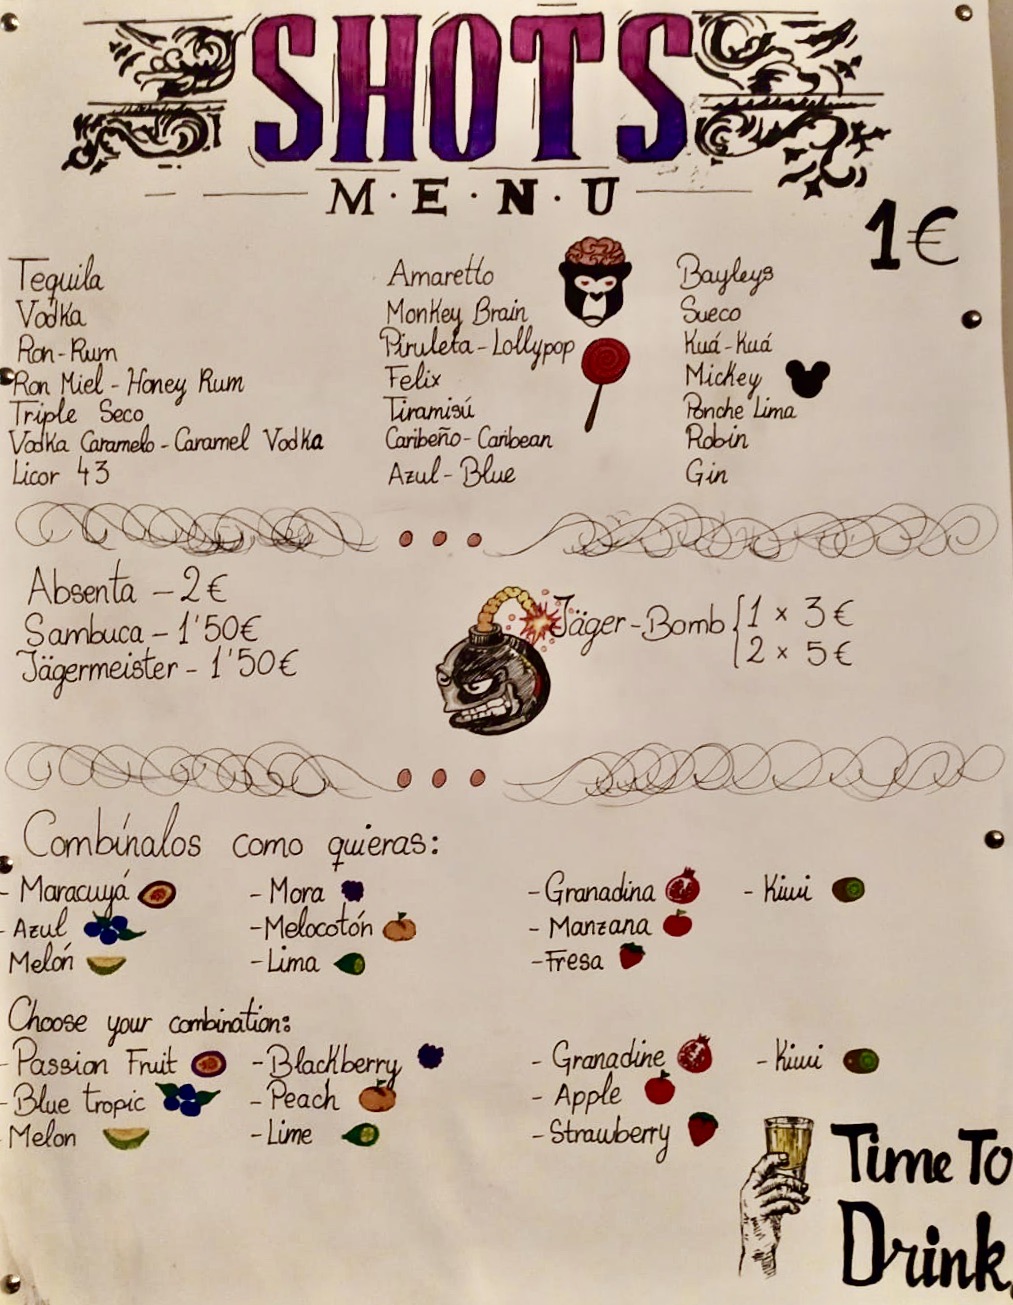 SHOTS
M·E·N·U
1€
Tequila
Vodka
Ron-Rum
Ron Miel - Honey Rum
Triple Seco
Vodka Caramelo - Caramel Vodka
Licor 43
Amaretto
Monkey Brain
Piruleta - Lollypop
Felix
Tiramisú
Caribeño - Caribean
Azul - Blue
Bayleys
Sueco
Kuá-Kuá
Mickey
Ponche Lima
Robin
Gin
Absenta - 2€
Sambuca - 1'50€
Jägermeister - 1'50€
Jäger-Bomb { 1 x 3€
2 x 5€
Combínalos como quieras:
- Maracuyá
- Azul
Melón
- Mora
- Melocotón
- Lima
- Granadina
- Manzana
- Fresa
- Kiwi
Choose your combination:
- Passion Fruit
- Blue tropic
- Melon
- Blackberry
- Peach
- Lime
- Granadine
- Apple
- Strawberry
- Kiwi
Time To
Drink